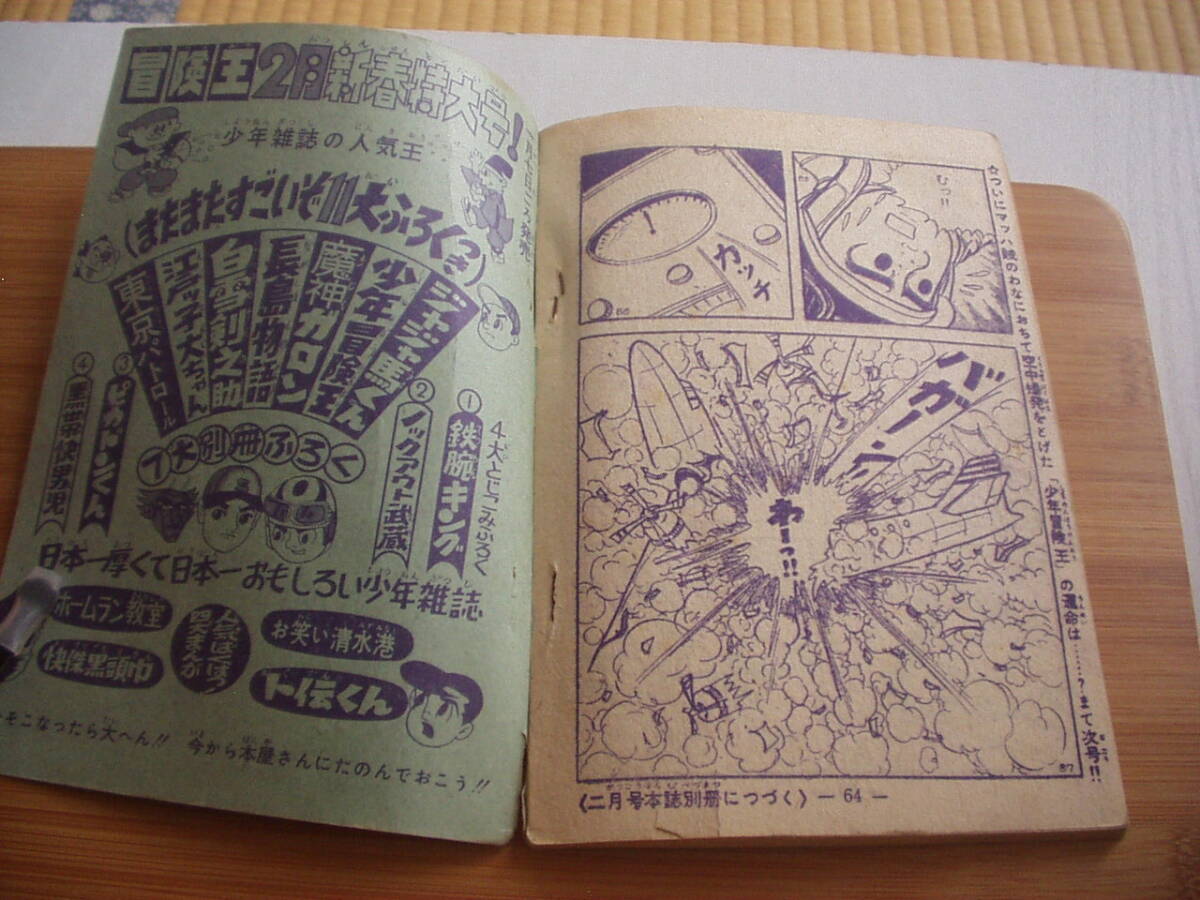 冒険王2月新春特大号!
少年雑誌の人気王‥
(またまたすごいぞ11大ふろくつき)
ジャジャ馬くん
少年冒険王
魔神ガロン
長島物語
白雪剣之助
江戸ッ子大ちゃん
東京パトロール
7大別冊ふろく
4大とじこみふろく
①鉄腕キング
②ノックアウト武蔵
③ピカドンくん
④黒帯快男児
日本一厚くて日本一おもしろい少年雑誌
ホームラン教室
快傑黒頭巾
お笑い清水港
ト伝くん
そこなったら大へん!! 今から本屋さんにたのんでおこう!!
むっ!!
カッチ
86
バガーン
わーっ!!
87
☆ついにマッハ岐のわなにおちて空中爆発をとげた「少年冒険王」の運命は……?まて次号!!
〈二月号本誌別冊につづく〉 — 64 —